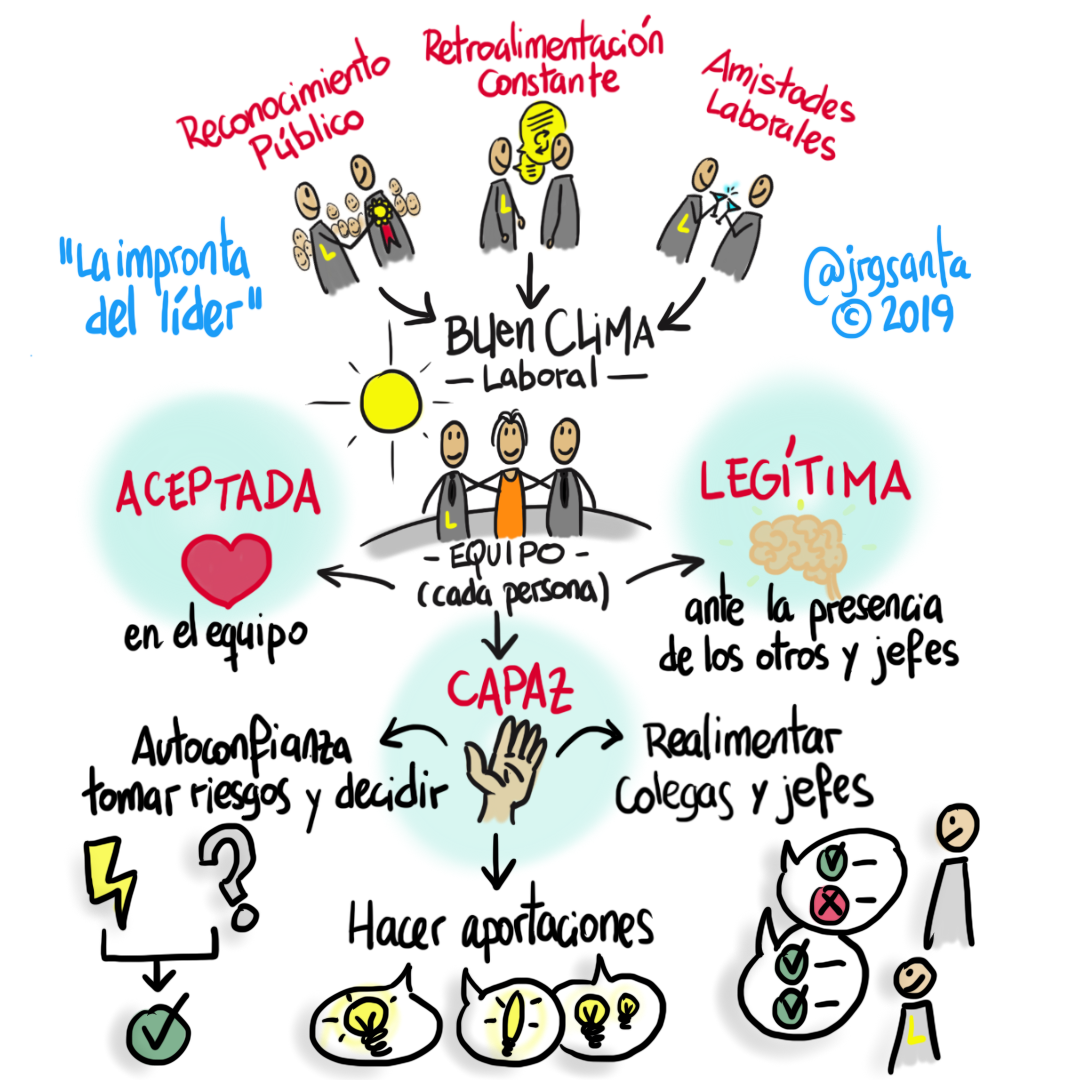 Reconocimiento
Público
Retroalimentación
Constante
Amistades
Laborales
L
L
L
"La impronta
del líder"
@jrgsanta
© 2019
BUen CLiMA
- Laboral -
ACEPTADA
en el equipo
L
- EQUIPO -
(cada persona)
LEGÍTIMA
ante la presencia
de los otros y jefes
CAPAZ
Autoconfianza
tomar riesgos y decidir
?
Realimentar
Colegas y jefes
Hacer aportaciones
L